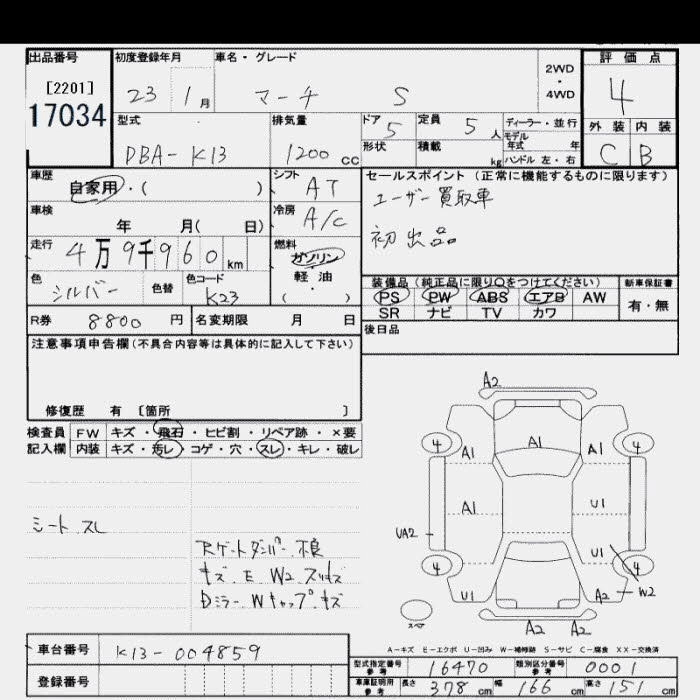 出品番号
[2201]
17034
初度登録年月
23 1月
車名・グレード
マーチ S
2WD
・
4WD
評価点
4
外装 内装
C B
型式
DBA-K13
排気量
1200 cc
ドア 5
定員 5 人
ディーラー・並行
モデル
年式 年
形状
積載 kg
ハンドル 左・右
車歴
自家用・( )
シフト
AT
セールスポイント (正常に機能するものに限ります)
ユーザー買取車
初出品
車検
年 月( 日)
冷房
A/C
走行
4万9千960km
燃料
ガソリン
軽・油
( )
色
シルバー
色替
色コード
K23
装備品 (純正品に限り○をつけてください)
PS PW ABS エアB AW
SR ナビ TV カワ
新車保証書
有・無
R券 8800 円
名変期限 月 日
後日品
注意事項申告欄(不具合内容等は具体的に記入して下さい)
修復歴 有 [箇所 ]
検査員 FW キズ・飛石・ヒビ割・リペア跡・×要
記入欄 内装 キズ・汚レ・コゲ・穴・スレ・キレ・破レ
シート スレ
Rゲートダンパー不良
キズ E W2 スリキズ
Dミラー Wキャップ キズ
A2
4 A1 A1 A1 4
A1 U1
UA2
U1
4 4
U1 A2 W2
スペア
A2 A2
A-キズ E-エクボ U-凹み W-補修跡 S-サビ C-腐食 XX-交換済
車台番号 K13-004859
登録番号
型式指定番号
参考
16470
類別区分番号
参考
0001
車庫証明用
参考
長さ 378 cm 幅 166 cm 高さ 151 cm